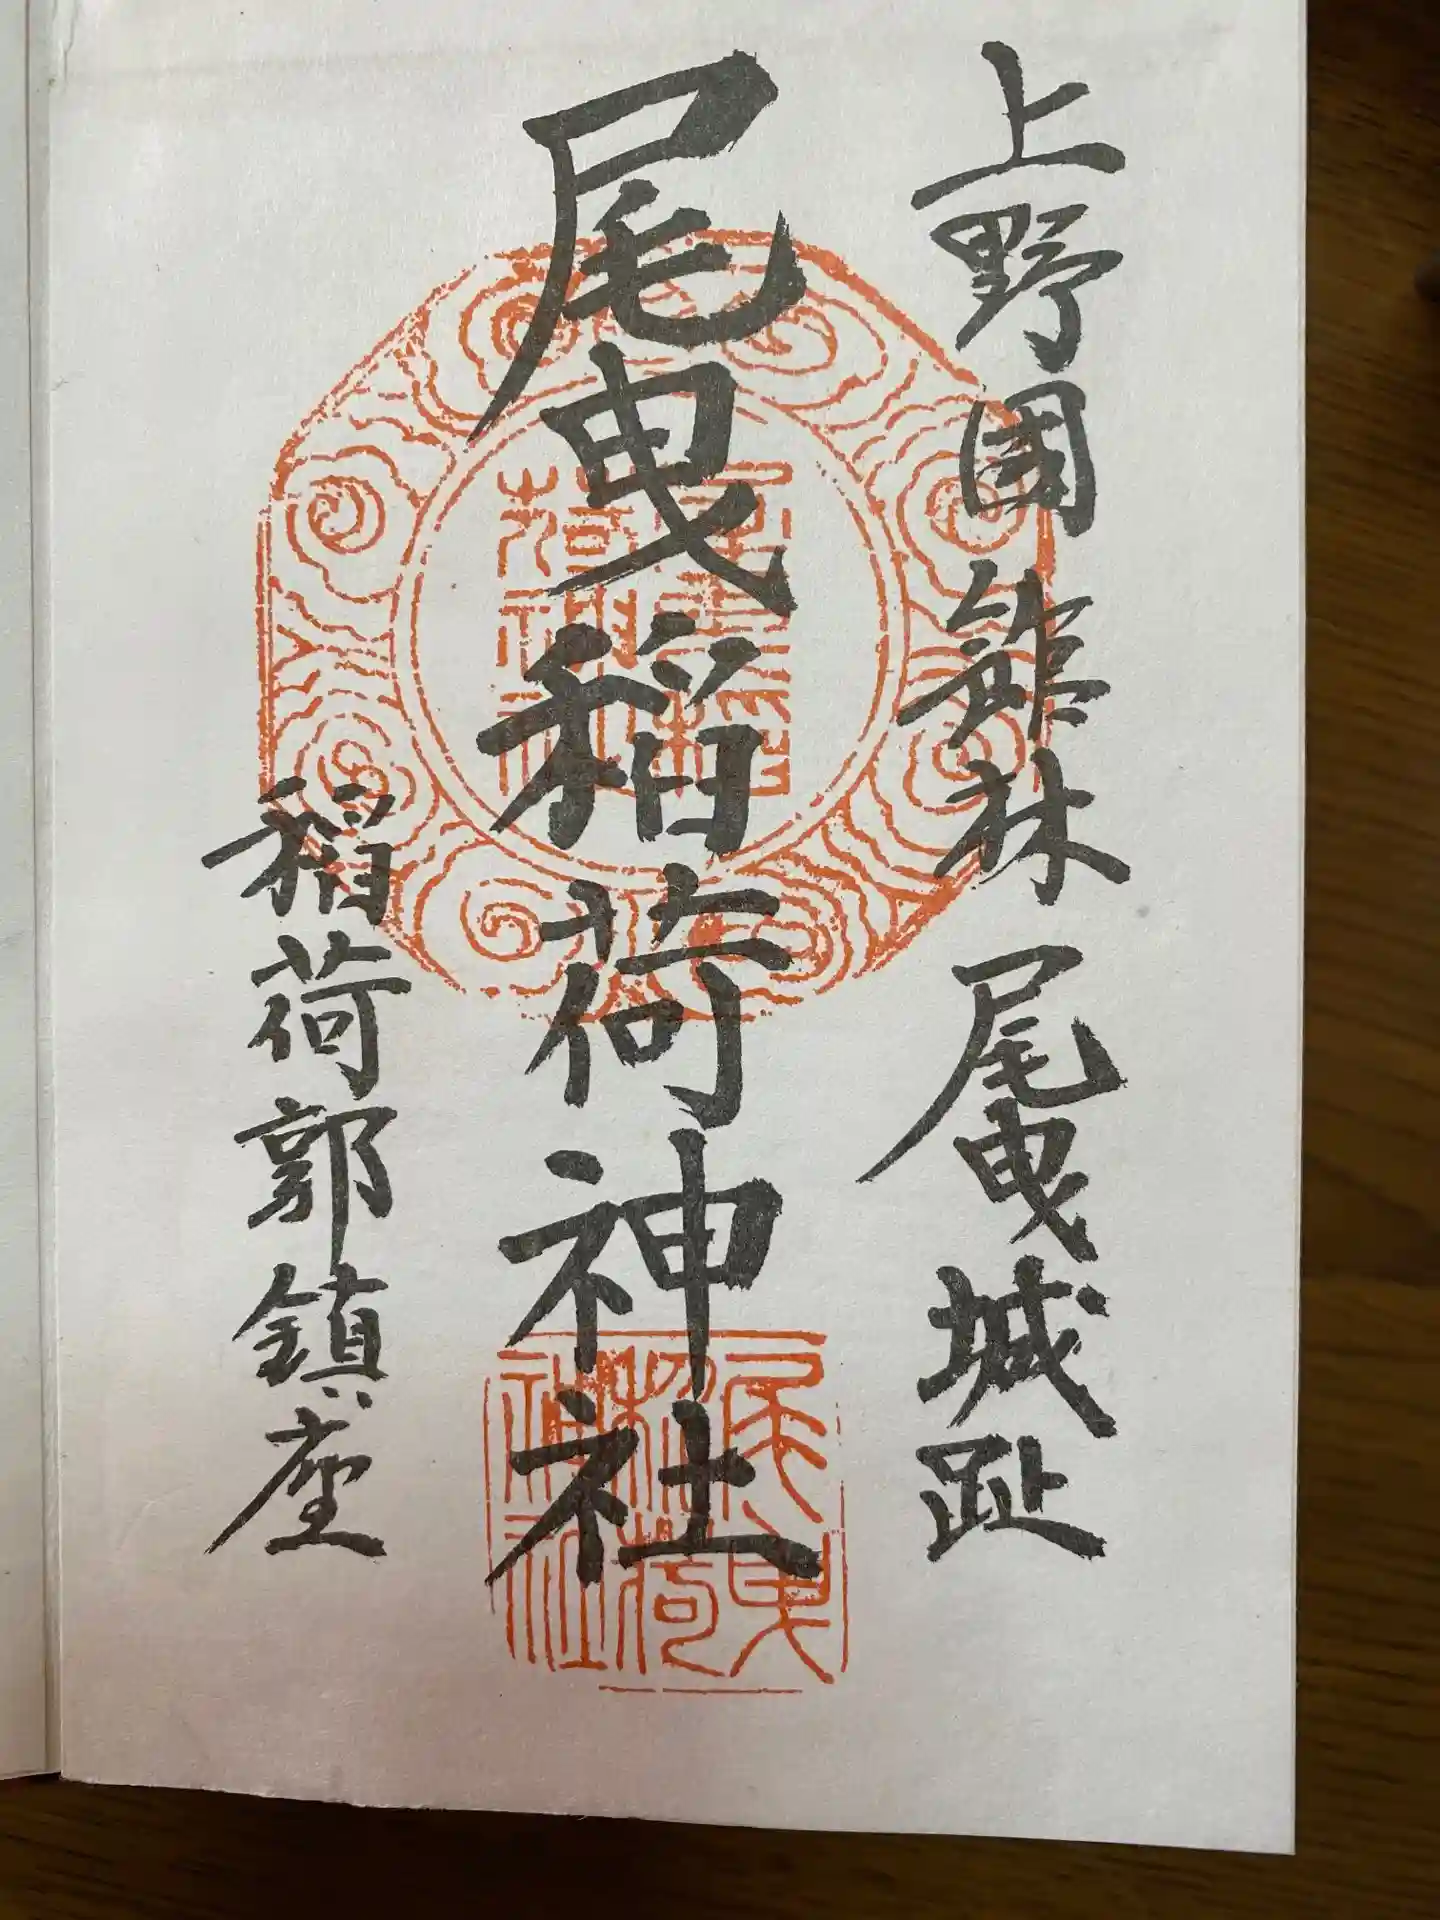 上野國 館林 尾曳城趾
尾曳稲荷神社
稲荷郭鎮座
尾曳稲荷神社